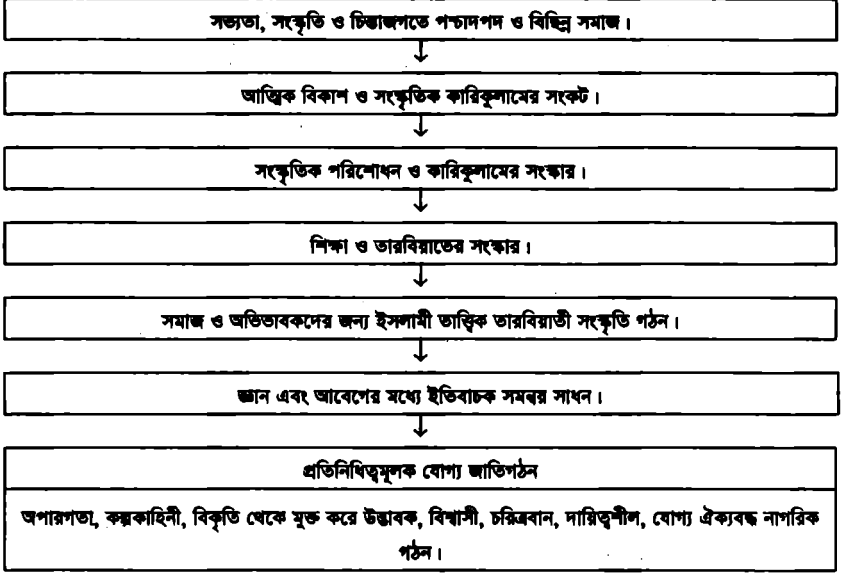 সভ্যতা, সংস্কৃতি ও চিন্তাজগতে পশ্চাদপদ ও বিচ্ছিন্ন সমাজ।
আত্মিক বিকাশ ও সংস্কৃতিক কারিকুলামের সংকট।
সংস্কৃতিক পরিশোধন ও কারিকুলামের সংস্কার।
শিক্ষা ও তারবিয়াতের সংস্কার।
সমাজ ও অভিভাবকদের জন্য ইসলামী তাত্ত্বিক তারবিয়াতী সংস্কৃতি গঠন।
জ্ঞান এবং আবেগের মধ্যে ইতিবাচক সমন্বয় সাধন।
প্রতিনিধিত্বমূলক যোগ্য জাতিগঠন
অপারগতা, কল্পকাহিনী, বিকৃতি থেকে মুক্ত করে উদ্ভাবক, বিশ্বাসী, চরিত্রবান, দায়িত্বশীল, যোগ্য ঐক্যবদ্ধ নাগরিক
গঠন।